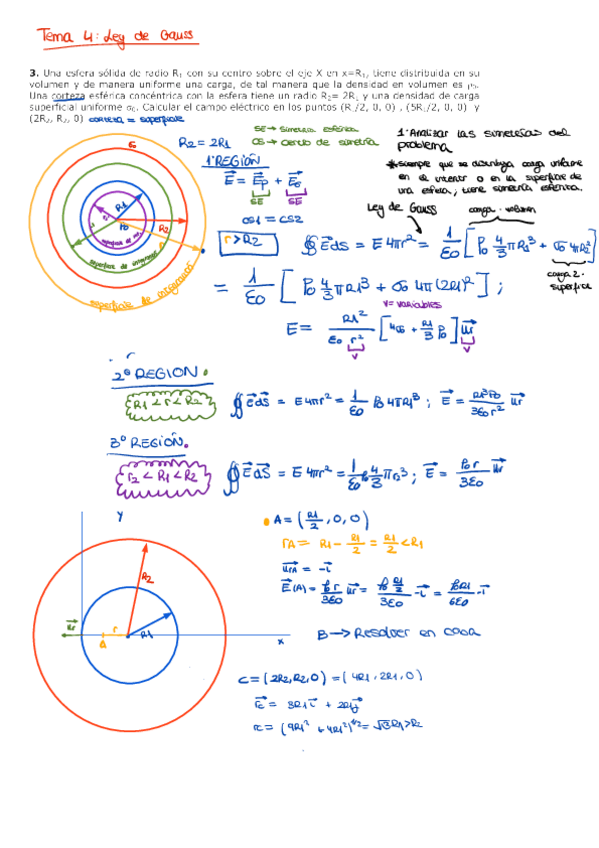 Tema 4: Ley de Gauss
3. Una esfera sólida de radio R₁ con su centro sobre el eje X en x=R₁, tiene distribuida en su
volumen y de manera uniforme una carga, de tal manera que la densidad en volumen es ρ₀.
Una corteza esférica concéntrica con la esfera tiene un radio R₂= 2R₁ y una densidad de carga
superficial uniforme σ₀. Calcular el campo eléctrico en los puntos (R₁/2, 0, 0) , (5R₁/2, 0, 0) y
(2R₂, R₂, 0) corteza = superficie
SE → simetría esférica
R₂ = 2R₁
CS → centro de simetría
1ª REGIÓN
E = Ep + Eσ
SE SE
CS1 = CS2
1º Analizar las simetrías del
problema
* siempre que se distribuya carga uniforme
en el interior o en la superficie de
una esfera, tiene simetría esférica.
Ley de Gauss
carga · volumen
r > R₂
∮ E dS = E 4πr² = 1/ε₀ [ ρ₀ 4/3 πR₁³ + σ₀ 4πR₂² ]
carga 2 ·
superficie
= 1/ε₀ [ ρ₀ 4/3 πR₁³ + σ₀ 4π(2R₁)² ] ;
v = variables
E = R₁²/ε₀ r² [ 4σ₀ + R₁/3 ρ₀ ] ur
v v
R₁
R₂
superficie de
superficie de
2º REGION.
R₁ < r < R₂
∮ E dS = E 4πr² = 1/ε₀ ρ₀ 4πR₁³ ; E = R₁³ρ₀/3ε₀r² ur
3º REGIÓN.
r₂ < R₁ < R₂
∮ E dS = E 4πr² = 1/ε₀ ρ₀ 4/3 πr₂³ ; E = ρ₀r/3ε₀ ur
y
A = (R₁/2, 0, 0)
rA = R₁ - R₁/2 = R₁/2 < R₁
urA = -i
E(A) = ρ₀r/3ε₀ ur = ρ₀ R₁/2 / 3ε₀ -i = ρ₀R₁/6ε₀ -i
R₂
Er
A
r
R₁
x
B → Resolver en casa
C = (2R₂, R₂, 0) = (4R₁, 2R₁, 0)
rc = 3R₁ i + 2R₁ j
rc = (9R₁² + 4R₁²)^1/2 = √13 R₁ > R₂